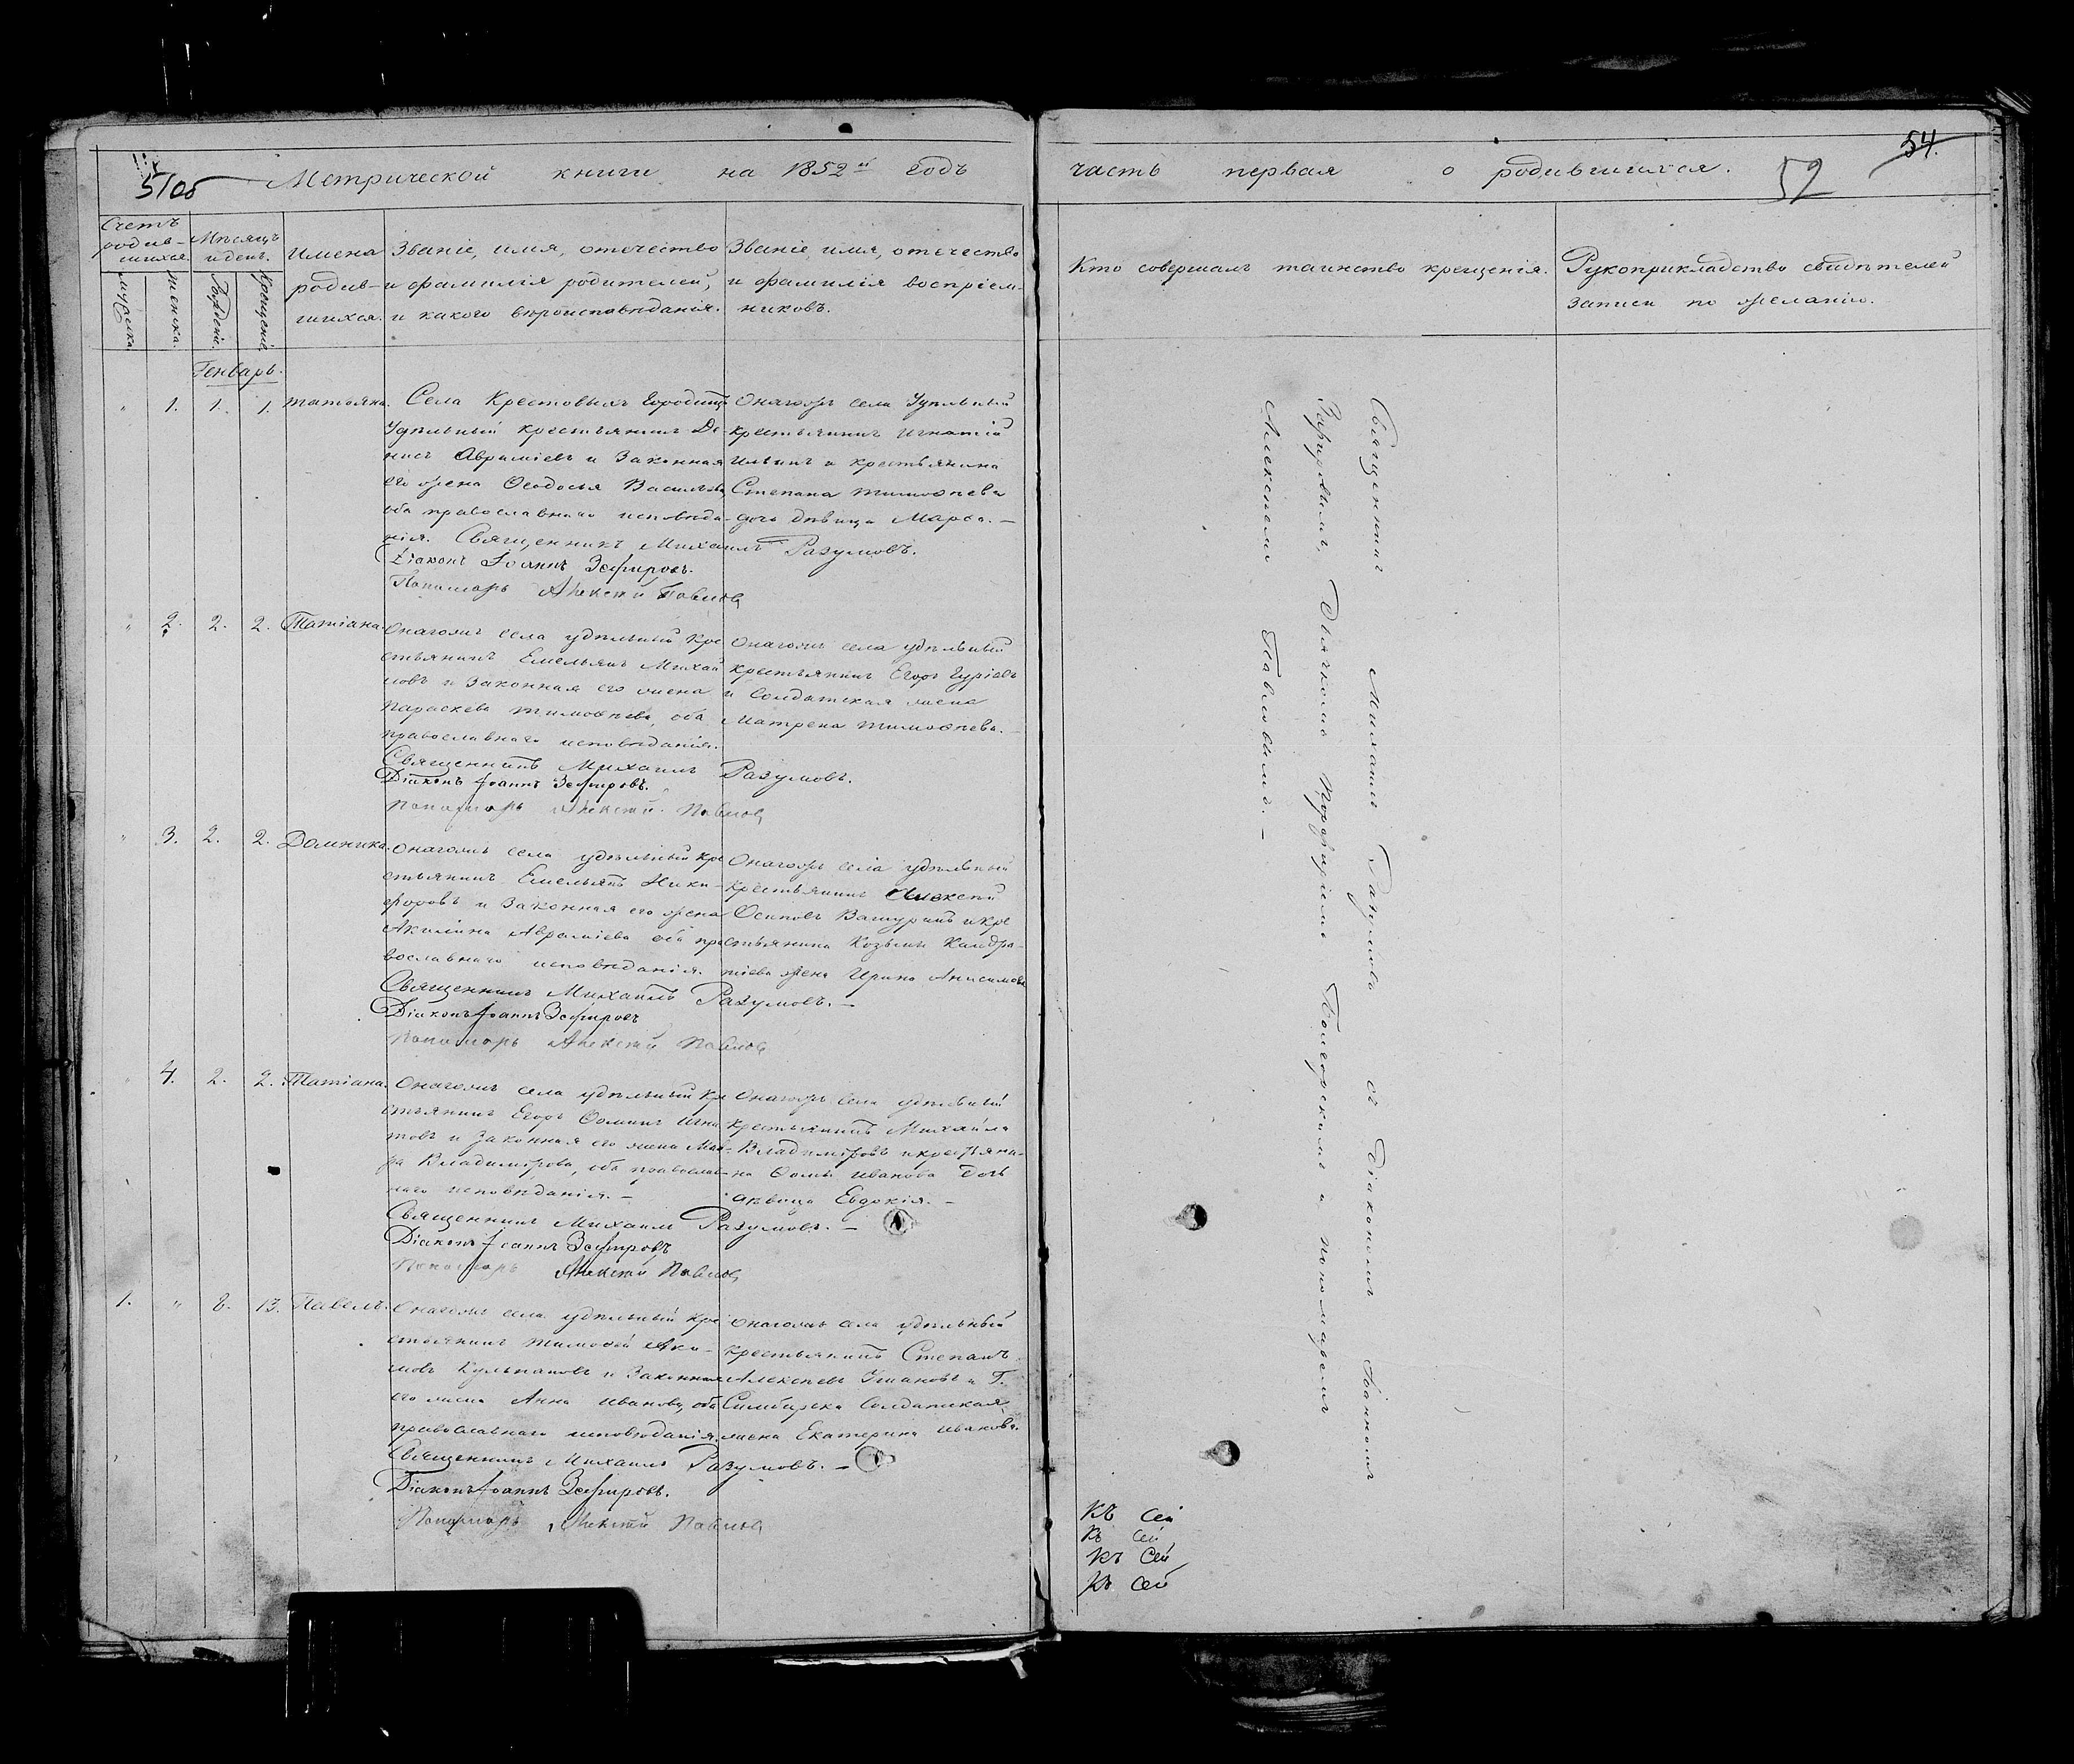 Метрической книги на 1852й годъ
часть первая о родившихся.
54.
52
Счетъ родив-шихся.
мужеска.
женска.
Мѣсяцъ и день.
Рожденiе.
Крещенiе.
Имена родив-шихся.
Званiе, имя, отечество
и фамилiя родителей,
и какого вѣроисповѣданiя.
Званiе, имя, отечество
и фамилiя воспрiем-
никовъ.
Кто совершалъ таинство крещенiя.
Рукоприкладство свидѣтелей
записи по желанiю.
Генварь.
" 1. 1. 1. Татьяна.
Села Крестовыхъ Городищъ
Удѣльный крестьянинъ Де-
нисъ Аврамiевъ и Законная
его жена Ѳеодосья Васильева
оба православнаго исповѣда-
нiя. Священникъ Михаилъ Разумовъ.
Дiаконъ Iоаннъ Зефировъ.
Пономарь Алексѣй Павловъ
Онагожъ села Удѣльный
крестьянинъ Игнатiй
Ильинъ и крестьянина
Степана Тимоѳѣева
дочь дѣвица Марѳа. —
" 2. 2. 2. Татiана.
Онагожъ села удѣльный кре
стьянинъ Емельянъ Михай
ловъ и Законная его жена
Параскева Тимоѳѣева, оба
православнаго исповѣданiя.
Священникъ Михаилъ Разумовъ.
Дiаконъ Iоаннъ Зефировъ.
Пономарь Алексѣй Павловъ
Онагожъ села удѣльный
крестьянинъ Егоръ Гурiевъ
и Солдатская жена
Матрена Тимоѳѣева. —
" 3. 2. 2. Домника.
Онагожъ села удѣльный кре
стьянинъ Емельянъ Ники-
форовъ и Законная его жена
Акилина Аврамiева оба пра
вославнаго исповѣданiя.
Священникъ Михаилъ Разумовъ. —
Дiаконъ Iоаннъ Зефировъ
Пономарь Алексѣй Павловъ
Онагожъ села удѣльный
крестьянинъ Алексѣй
Осиповъ Вашуринъ и кре
стьянина Козьмы Кандра-
тiева жена Ирина Анисимова
" 4. 2. 2. Татiана.
Онагожъ села удѣльный кре
стьянинъ Егоръ Ѳоминъ Игна
товъ и Законная его жена Мав-
ра Владимiрова, оба православ-
наго исповѣданiя. —
Священникъ Михаилъ Разумовъ. —
Дiаконъ Iоаннъ Зефировъ
Пономарь Алексѣй Павловъ
Онагожъ села удѣльный
крестьянинъ Михайла
Владимiровъ и крестьяни-
на Ѳомы Иванова дочь
дѣвица Евдокiя. —
1. " 8. 13. Павелъ.
Онагожъ села удѣльный кре
стьянинъ Тимоѳей Аки-
мовъ Кульпановъ и Законная
его жена Анна Иванова, оба
православнаго исповѣданiя.
Священникъ Михаилъ Разумовъ. —
Дiаконъ Iоаннъ Зефировъ.
Пономарь Алексѣй Павловъ
Онагожъ села удѣльный
крестьянинъ Степанъ
Алексѣевъ Ушаковъ и Г.
Симбирска Солдатская
жена Екатерина Иванова.
Священникъ Михаилъ Разумовъ съ Дiакономъ Iоанномъ
Зефировымъ, Дьячкомъ Порфирiемъ и пономаремъ
Алексѣемъ Павловымъ. —
Къ сей
Къ сей
Къ сей
Къ сей